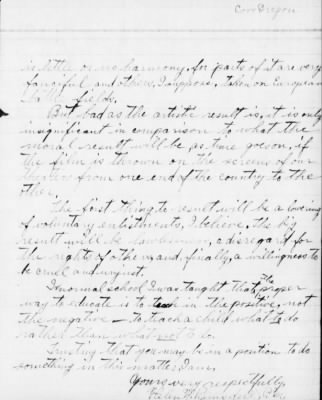 Corv Oregon
is little or no harmony, for parts of it are very
fanciful and others, I suppose, taken on European
battle fields.
But bad as the artistic result is, it is only
insignificant in comparison to what the
moral result will be as time goes on, if
the film is thrown on the screens of our
theatres from one end of the country to the
other.
The first thing to result will be a lowering
of voluntary enlistments, I believe. The big
result will be lawlessness, a disregard for
the rights of others, and finally, a willingness to
be cruel and unjust.
In normal school I was taught that the proper
way to educate is to teach in the positive, not
the negative - To teach a child what to do
rather than what not to do.
Trusting that you may be in a position to do
something in this matter, I am,
Yours very respectfully,
Helen